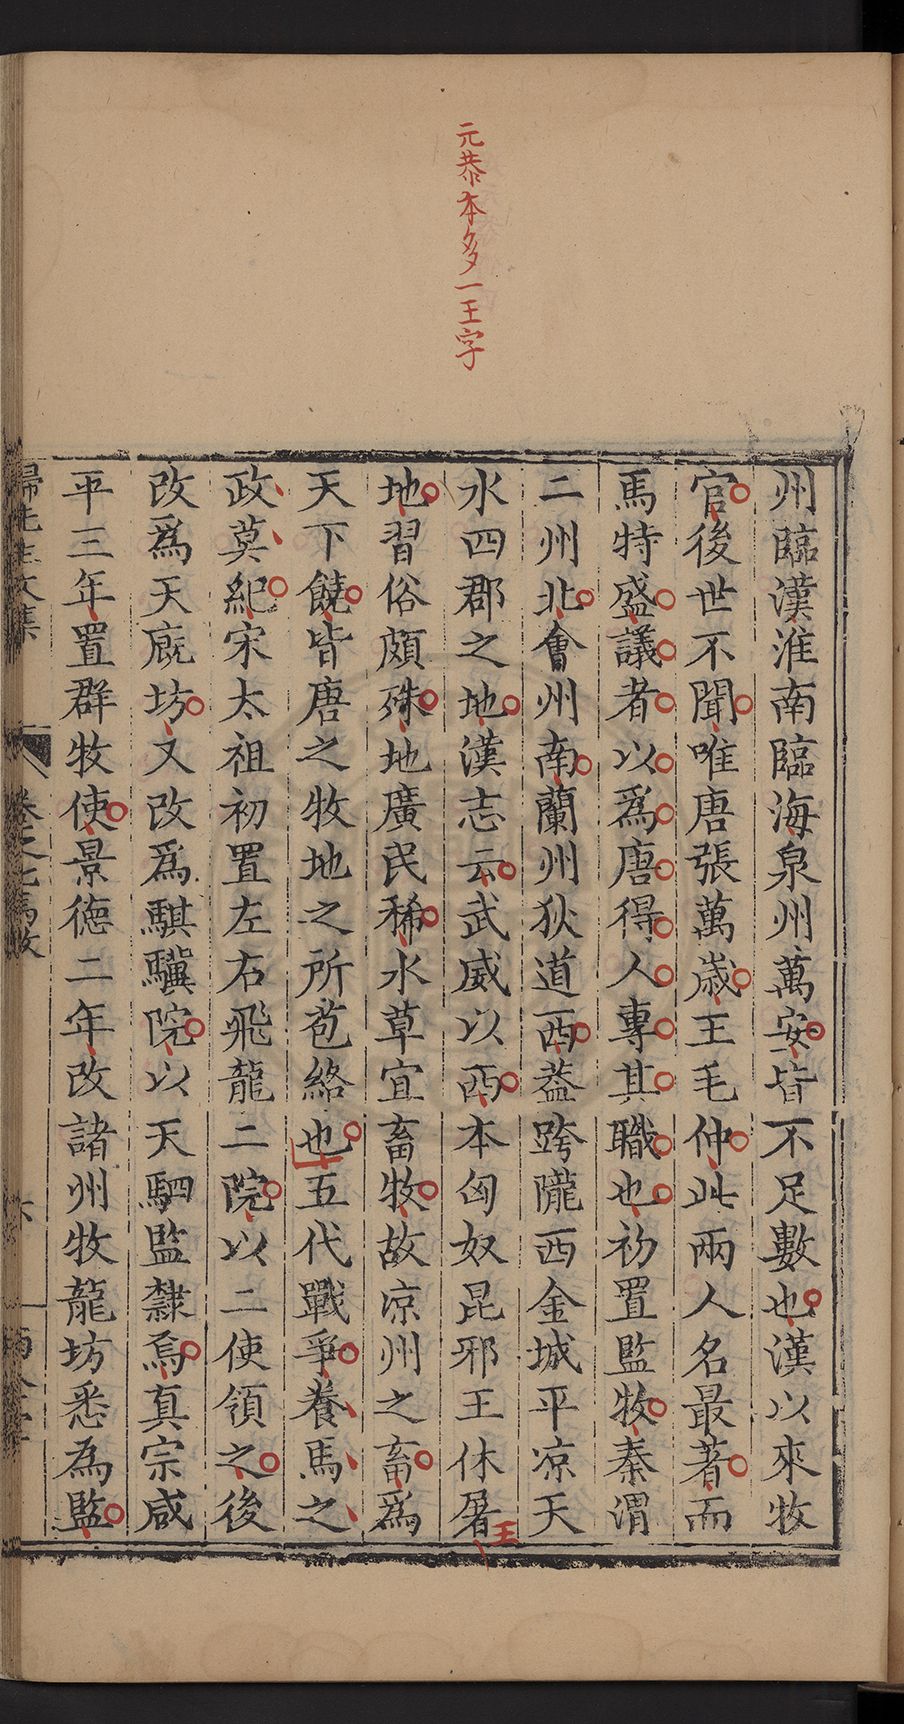 元恭本多一王字
州臨漢淮南臨海泉州萬安皆不足數也漢以來牧
官後世不聞唯唐張萬歲王毛仲此兩人名最著而
馬特盛議者以爲唐得人專其職也初置監牧秦渭
二州北會州南蘭州狄道西葢跨隴西金城平凉天
水四郡之地漢志云武威以西本匈奴昆邪王休屠
王
地習俗頗殊地廣民稀水草宜畜牧故凉州之畜爲
天下饒皆唐之牧地之所苞絡也五代戰爭養馬之
政莫紀宋太祖初置左右飛龍二院以二使領之後
改爲天廐坊又改爲騏驥院以天駟監隸焉真宗咸
平三年置群牧使景德二年改諸州牧龍坊悉為監
歸先生文集
卷之七馬政
六